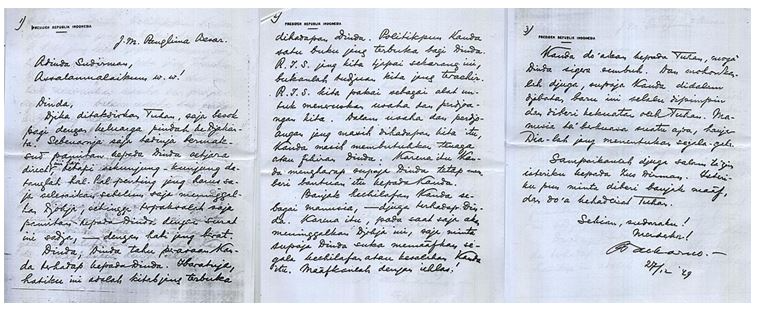 1)
PRESIDEN REPUBLIK INDONESIA
J.M. Panglima Besar.
Adinda Sudirman,
Assalamualaikum w.w!
Dinda,
Djika ditakdirkan Tuhan, saja besok
pagi dengan keluarga pindah ke Djakar-
ta. Sebenarnja saja tadinja bermak-
sud pamitan kepada Dinda setjara
direct, tetapi sekunjung-kunjung da-
tanglah hal-hal penting jang harus sa-
ja selesaikan sebelum saja meninggal-
kan Djokja, sehingga terpaksalah saja
pamitan kepada Dinda dengan surat
ini sadja, — dengan hati jang berat.
Dinda, Dinda tahu perasaan Kan-
da terhadap kepada Dinda. Ibaratnja,
hatiku ini adalah kitab jang terbuka
2)
PRESIDEN REPUBLIK INDONESIA
dihadapan Dinda. Politikpun Kanda
satu buku jang terbuka bagi Dinda.
R.I.S. jang kita tjapai sekarang ini,
bukanlah tudjuan kita jang terachir.
R.I.S. kita pakai sebagai alat un-
tuk meneruskan usaha dan perdjoa-
ngan kita. Dalam usaha dan perdjo-
angan jang masih dihadapan kita itu,
Kanda masih membutuhkan tenaga
atau fikiran Dinda. Karena itu Kan-
da mengharap supaja Dinda tetap mem-
beri bantuan itu kepada Kanda.
Banjak kechilafan Kanda se-
bagai manusia, — djuga terhadap Din-
da. Karena itu, pada saat saja akan
meninggalkan Djokja ini, saja minta
supaja Dinda suka memaafkan se-
gala kechilafan atau kesalahan Kanda
itu. Maafkanlah dengan ichlas!
3)
PRESIDEN REPUBLIK INDONESIA
Kanda do'akan kepada Tuhan, moga2
Dinda sigera sembuh. Dan mohonkan-
lah djuga, supaja Kanda didalam
djabatan baru ini selalu dipimpin
dan diberi kekuatan oleh Tuhan. Ma-
nusia ta' berkuasa suatu apa, hanja
Dia-lah jang menentukan segala-gala.
Sampaikanlah djuga salam
isteriku kepada Zus Dirman. Isteri-
ku pun minta diberi banjak maaf,
dan do'a kehadirat Tuhan.
Sekian, sudaraku!
Merdeka!
Soekarno.—
27/12 '49